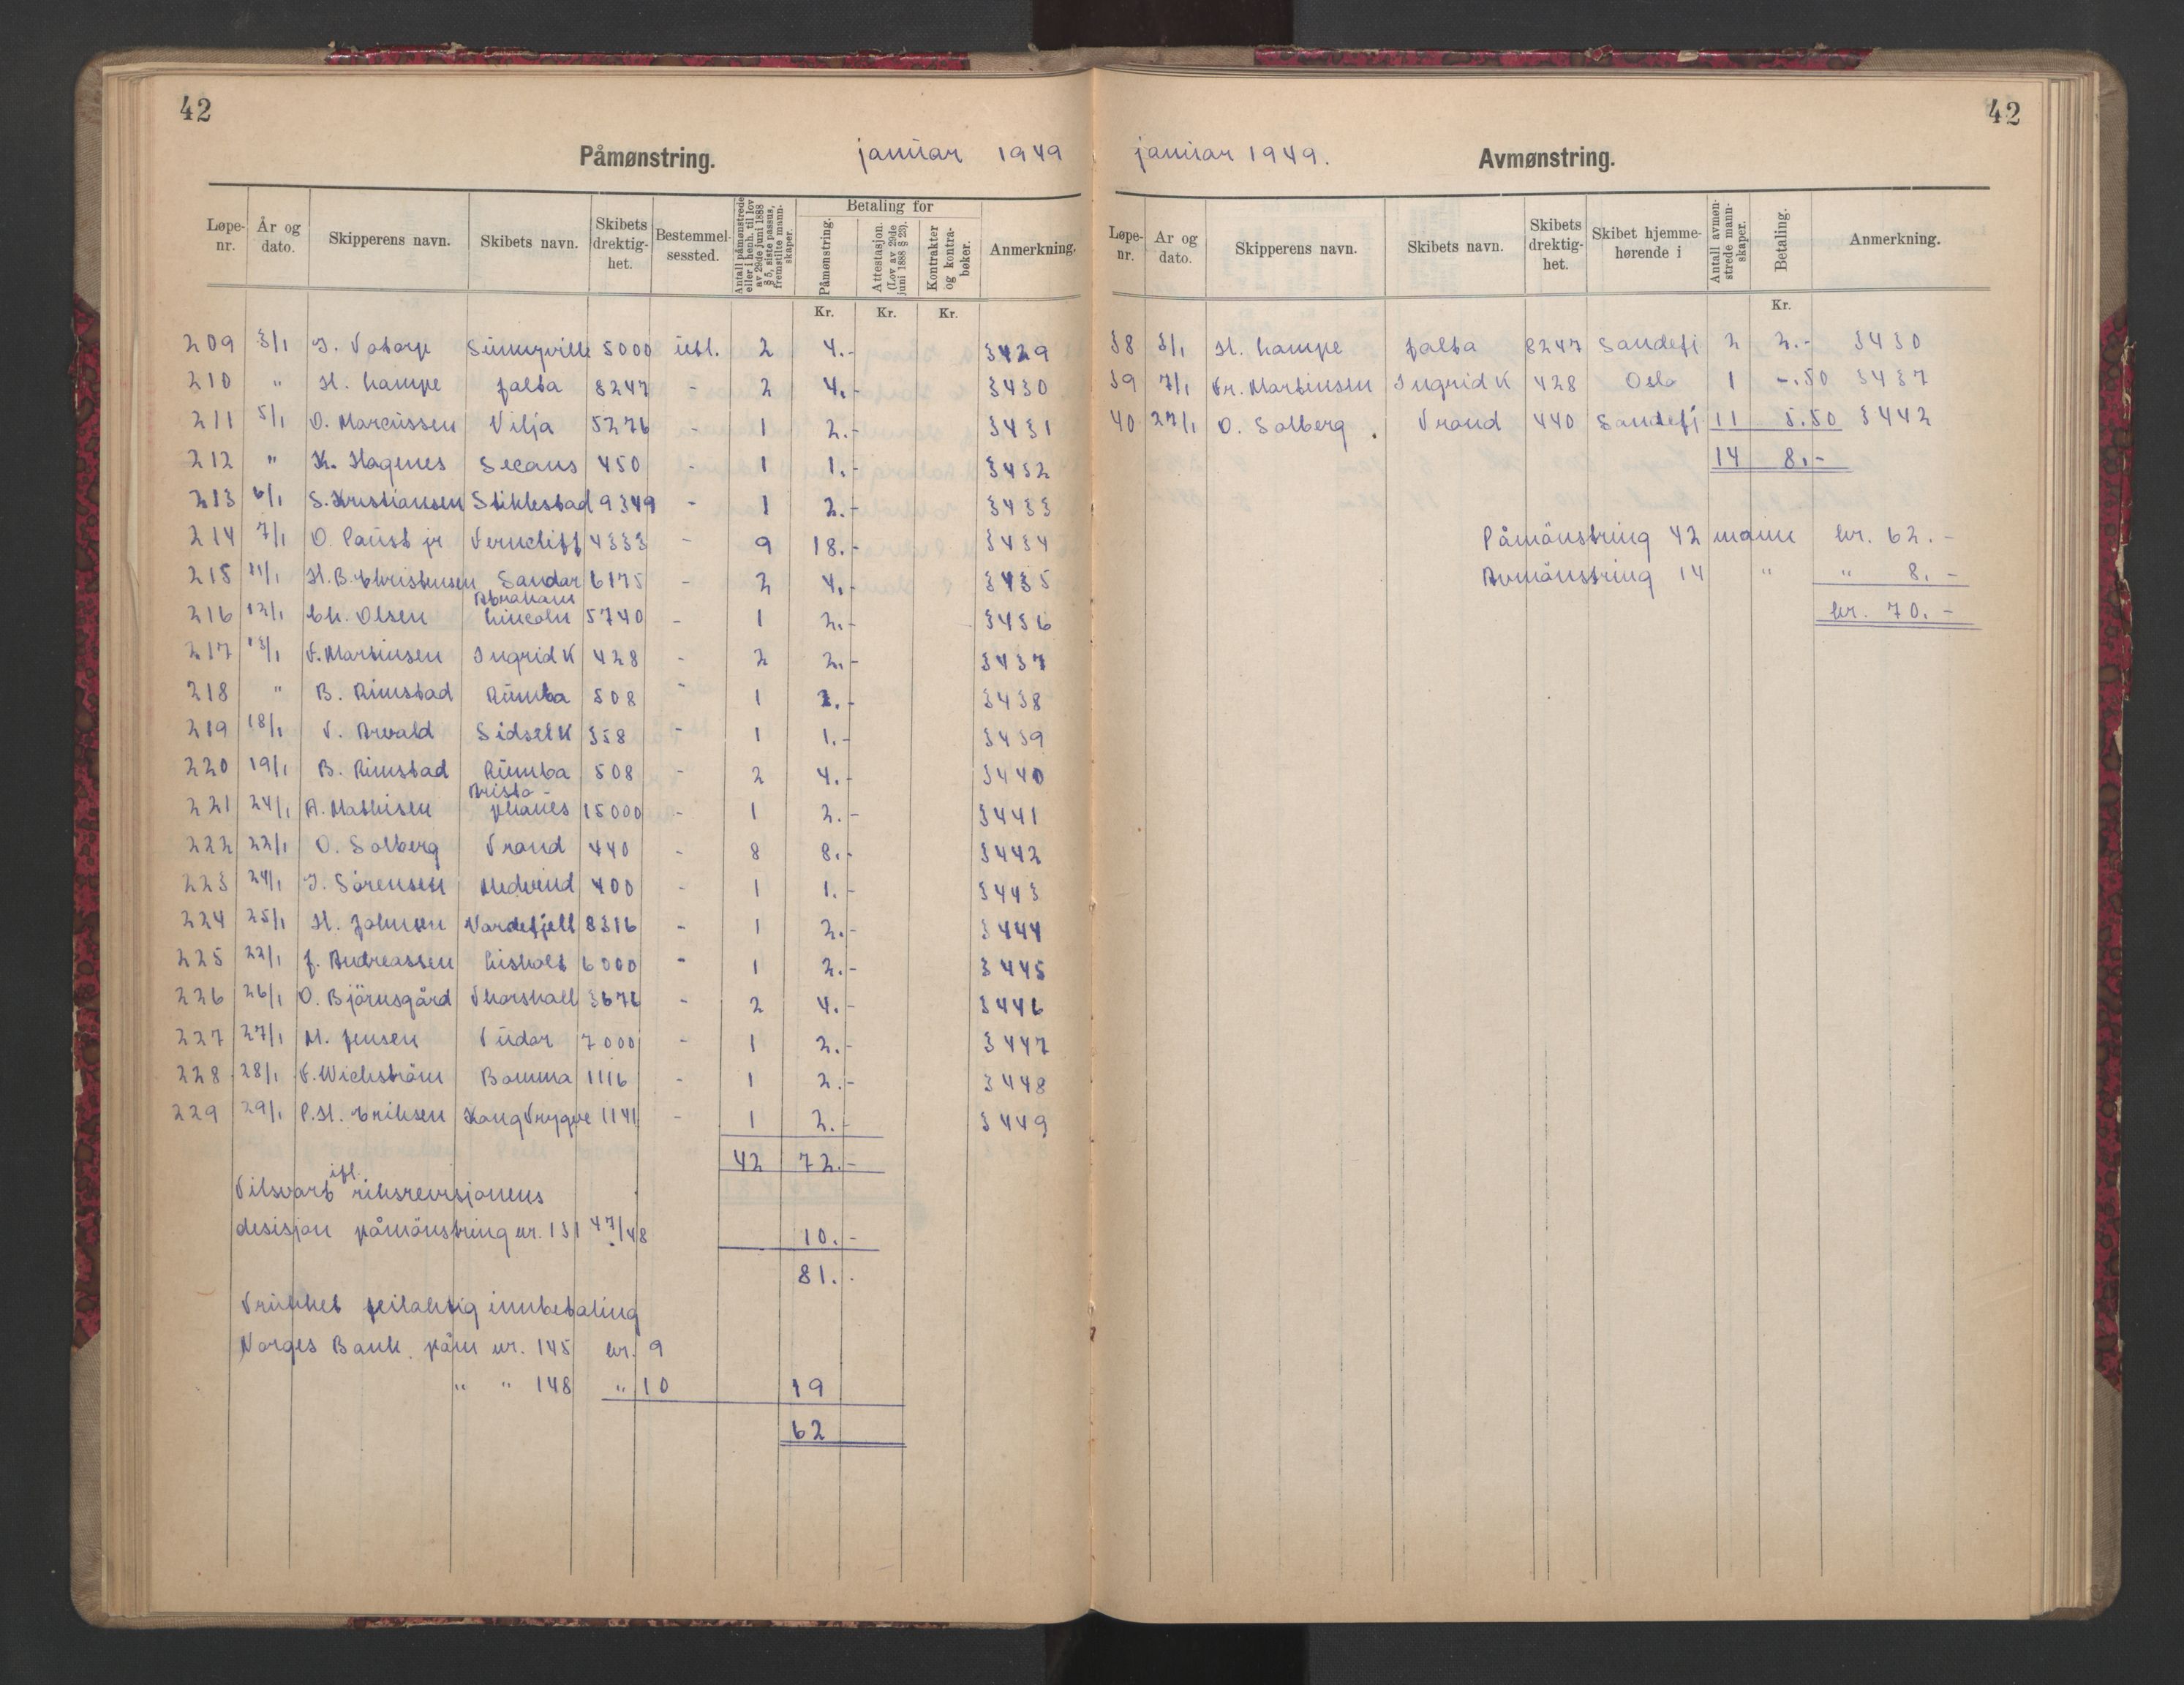 42
Påmønstring.
januar 1949
Løpe-nr. År og dato. Skipperens navn. Skibets navn. Skibets drektighet. Bestemmelsessted. Antall påmønstrede eller i henh. til lov av 29de juni 1888 § 5, siste passus, fremstilte mannskaper. Betaling for Påmønstring. Attestasjon. (Lov av 29de juni 1888 § 23). Kontrakter og kontrabøker. Anmerkning.
Kr. Kr. Kr.
209 3/1 Sunnyville 5000 utl. 2 4.- 3429
210 " H. Lampe Jalta 8247 - 2 4.- 3430
211 5/1 O. Marcussen Vilja 5276 - 1 2.- 3431
212 " K. Hagenes Secans 450 - 1 1.- 3432
213 6/1 S. Kristiansen Stiklestad 9349 - 1 2.- 3433
214 7/1 O. Paust jr Ferncliff 4333 - 9 18.- 3434
215 11/1 H.B. Christensen Sandar 6175 - 2 4.- 3435
216 12/1 Ch. Olsen Abraham Lincoln 5740 - 1 2.- 3436
217 13/1 F. Martinsen Ingrid K 428 - 2 2.- 3437
218 " B. Rimstad Rumba 508 - 1 2.- 3438
219 18/1 T. Arvald Sidsel K 358 - 1 1.- 3439
220 19/1 B. Rimstad Rumba 508 - 2 4.- 3440
221 24/1 A. Mathisen Aristo-phanes 15000 - 1 2.- 3441
222 22/1 O. Solberg Trond 440 - 8 8.- 3442
223 24/1 J. Sörensen Medvind 400 - 1 1.- 3443
224 25/1 H. Johnsen Vardefjell 8316 - 1 2.- 3444
225 22/1 J. Andreassen Lisholt 6000 - 1 2.- 3445
226 26/1 O. Björnsgård Thorshall 3676 - 2 4.- 3446
227 27/1 M. Jensen Tudor 7000 - 1 2.- 3447
228 28/1 F. Wickström Bomma 1116 - 1 2.- 3448
229 29/1 P.H. Eriksen Kong Trygve 1141 - 1 2.- 3449
42 72.-
Tilsvart ifl. riksrevisjonens
desisjon påmönstring nr. 131 47/48 10.-
81.-
Trukket feilaktig innbetaling
Norges Bank. påm nr. 145 kr. 9
" " 148 " 10 19
62
42
januar 1949.
Avmønstring.
Løpe-nr. År og dato. Skipperens navn. Skibets navn. Skibets drektighet. Skibet hjemmehørende i Antall avmønstrede mannskaper. Betaling. Anmerkning.
Kr.
38 3/1 H. Lampe Jalta 8247 Sandefj 2 2.- 3430
39 7/1 Fr. Martinsen Ingrid K 428 Oslo 1 -.50 3437
40 27/1 O. Solberg Trond 440 Sandefj 11 5.50 3442
14 8.-
Påmönstring 42 mann kr. 62.-
Avmönstring 14 " " 8.-
kr. 70.-